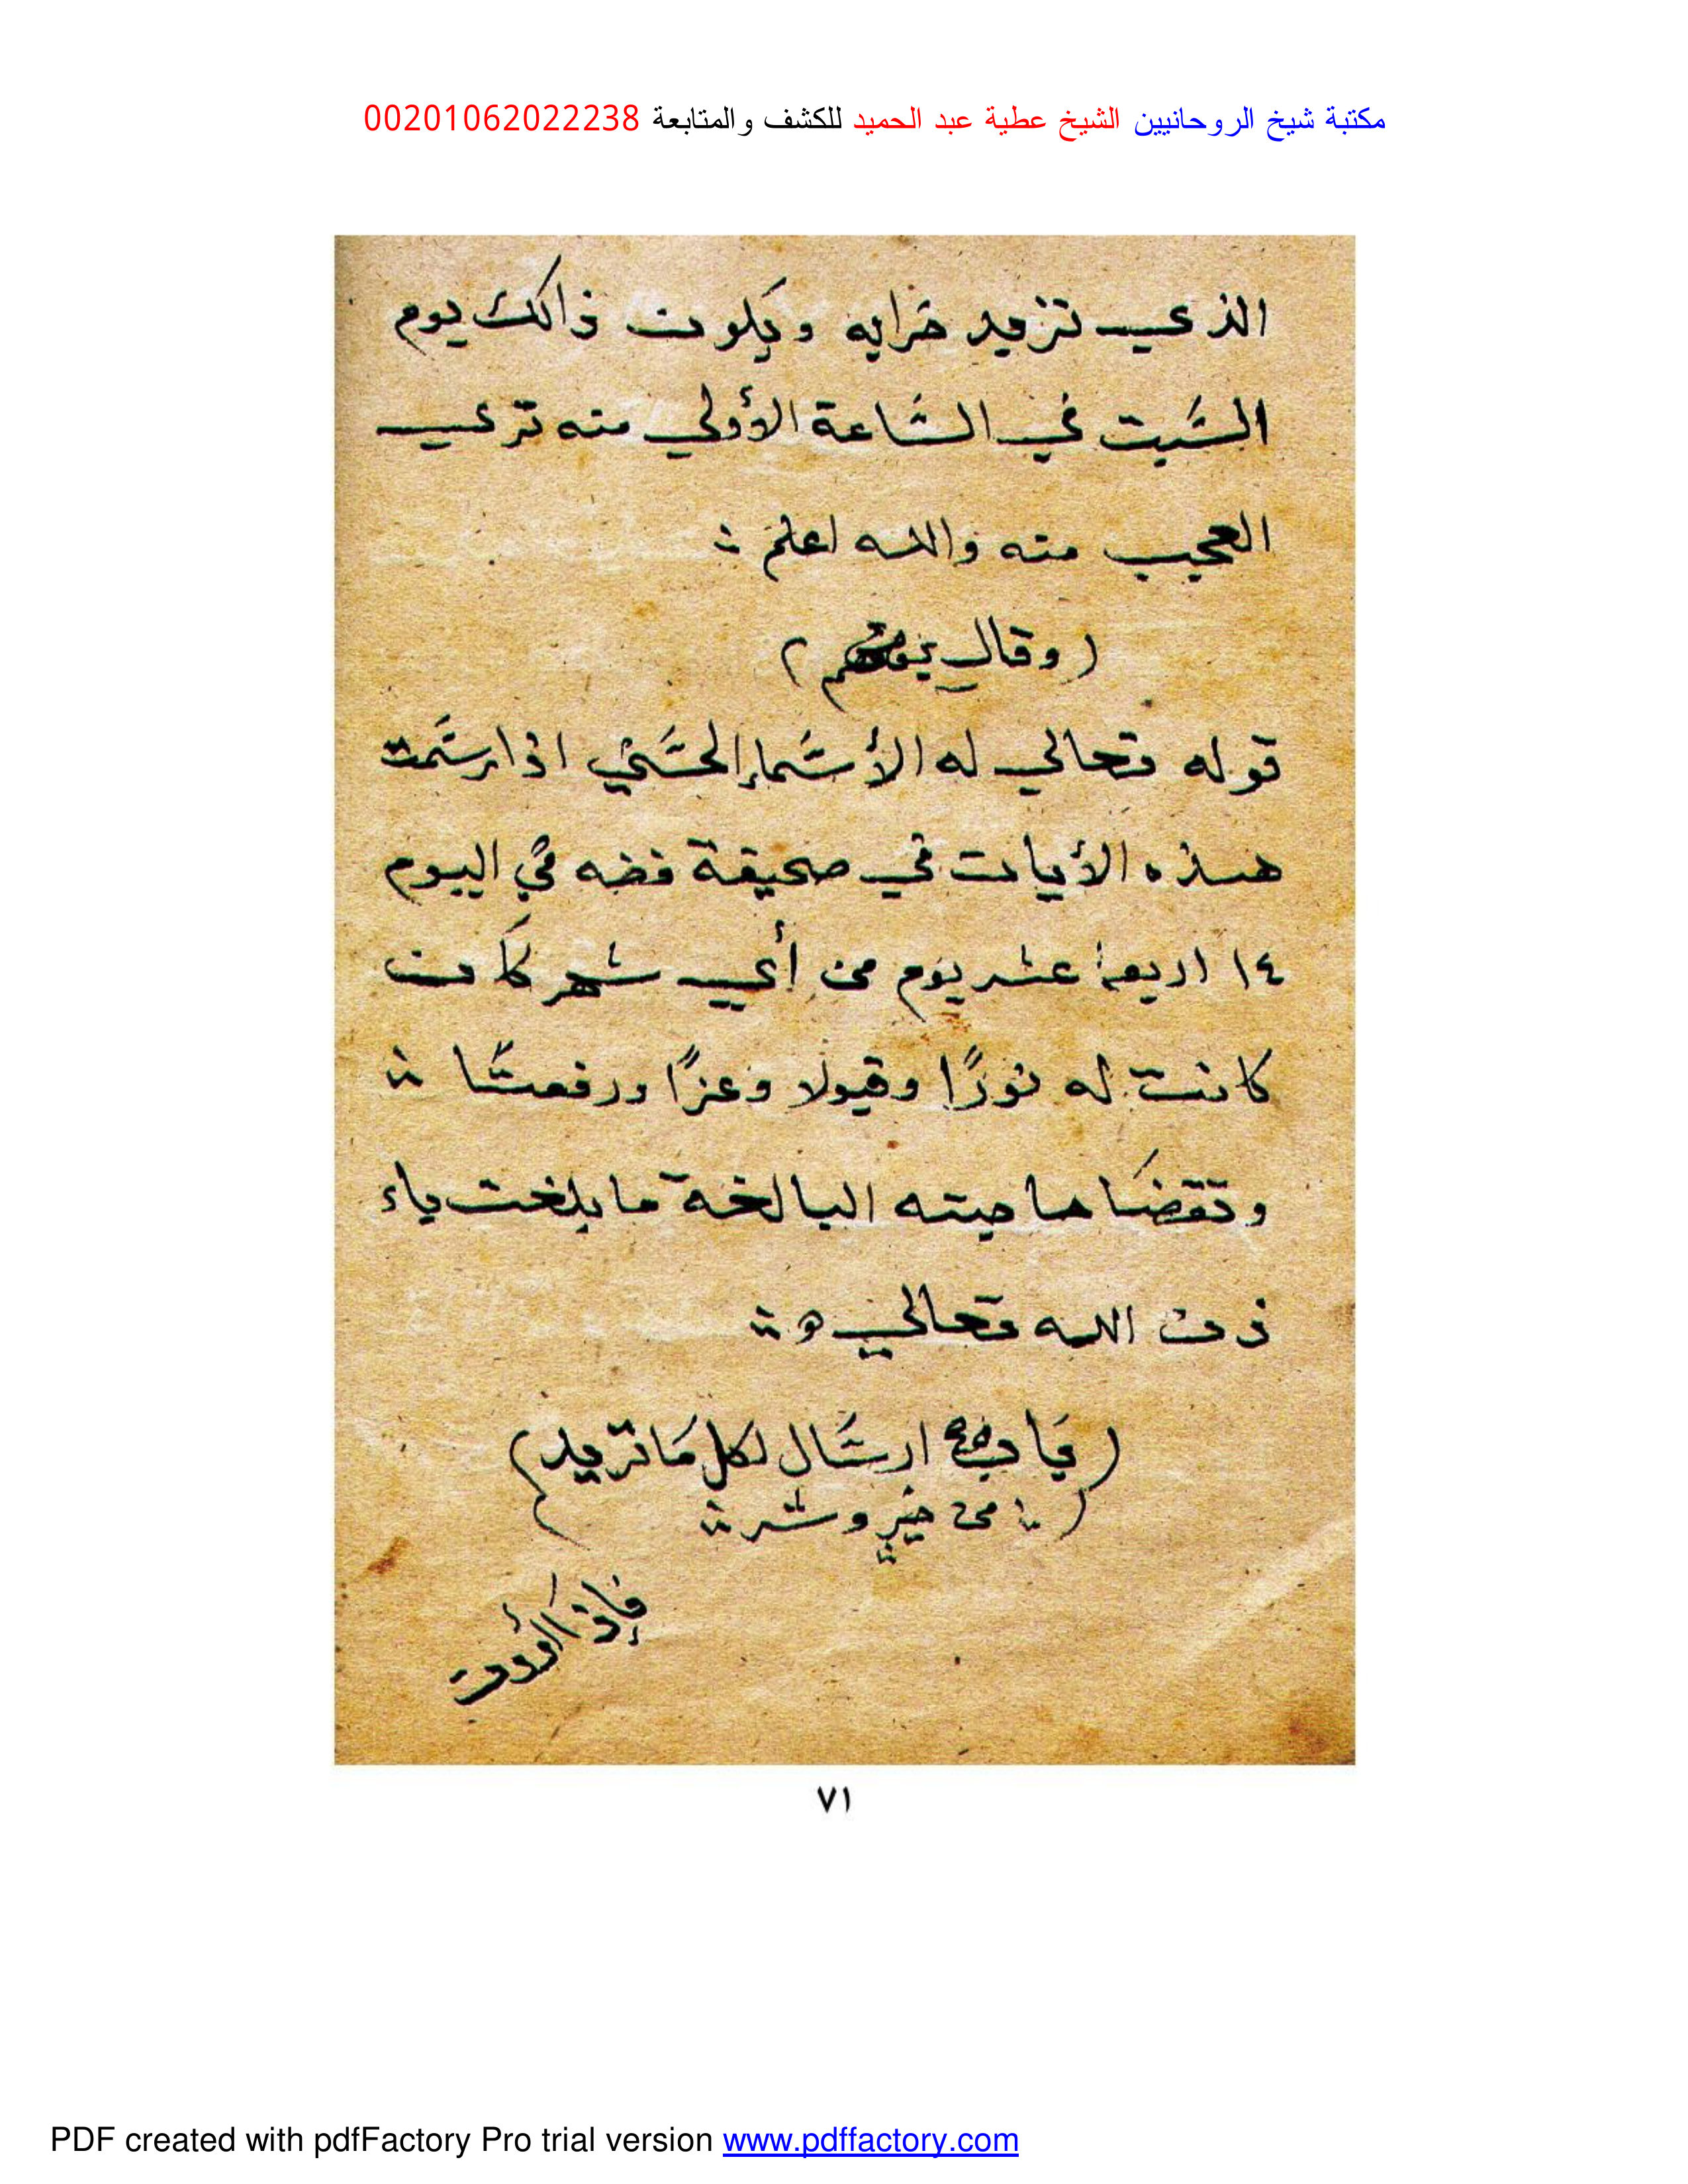 مكتبة شيخ الروحانيين الشيخ عطية عبد الحميد للكشف والمتابعة 00201062022238
الذي تزيد خرابه ويكون ذالك يوم
السّبت في السّاعة الأولي منه تري
العجيب منه والله اعلم
(وقال)
قوله تعالي له الأسّماء الحسّني اذا رسّمت
هذه الأيات في صحيفة فضه في اليوم
١٤ اربعة عشر يوم من أي شهر كان
كانت له نورًا وقبولا وعزًا ورفعتًا
وتقضا حاجته البالغة ما بلغت باء
ذن الله تعالي
(باب ارسّال لكل ما تريد)
(من خير وشر)
فإذا أردت
٧١
PDF created with pdfFactory Pro trial version www.pdffactory.com